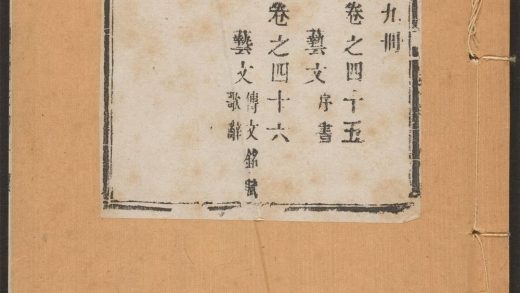 九冊
卷之四十五
藝文 序 書
卷之四十六
藝文 傳 文 銘 賦
歌 辭